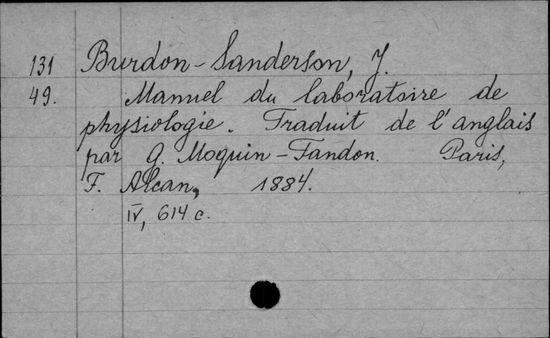 131 Burdon-Sanderson, J.
49. Manuel du laboratoire de
physiologie. Traduit de l'anglais
par G. Moquin-Tandon. Paris,
F. Alcan, 1884.
IV, 614 c.